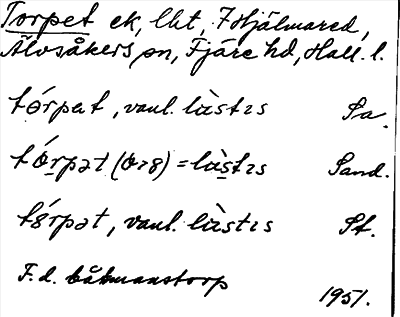 Torpet ek, lht, 7 Hjälmared,
Älvsåkers sn, Fjäre hd, Hall. l.
tórpət, vanl. làstɪs Sa.
tórpət (ory) = làstɪs Sand.
tórpət, vanl. làstɪs St.
F. d. båtmanstorp
1951.